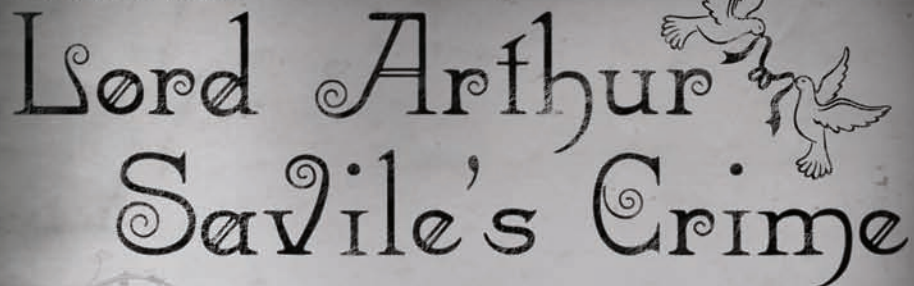 Lord Arthur
Savile's Crime